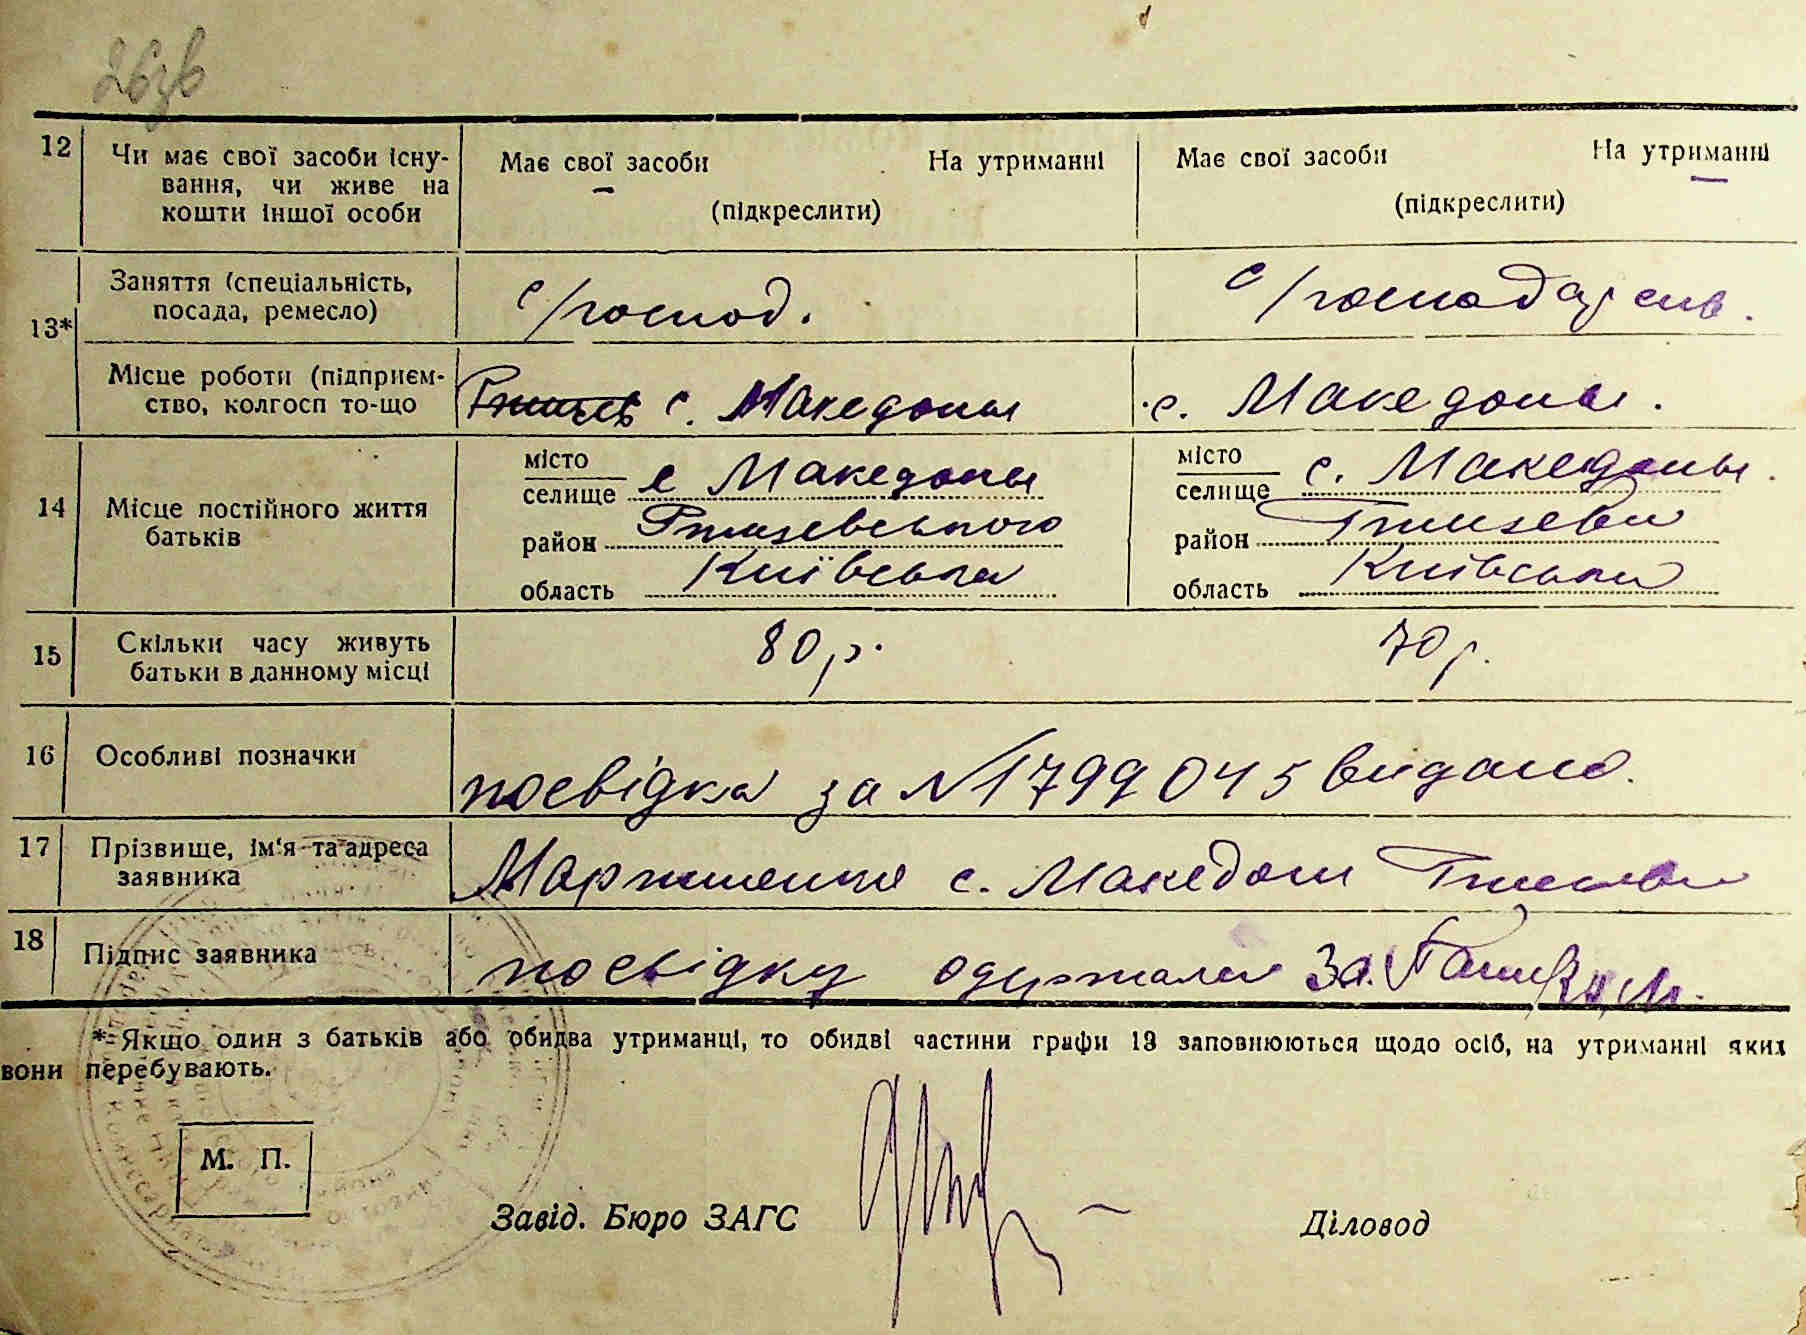 12
Чи має свої засоби існу-
вання, чи живе на
кошти іншої особи
Має свої засоби На утриманні
(підкреслити)
Має свої засоби На утриманні
(підкреслити)
13*
Заняття (спеціальність,
посада, ремесло)
с/господ.
с/господарств.
Місце роботи (підприєм-
ство, колгосп то-що
с. Македоны
с. Македоны.
14
Місце постійного життя
батьків
місто
селище с Македоны
район Ржищевського
область Київська
місто
селище с. Македоны.
район Ржищевск
область Київська
15
Скільки часу живуть
батьки в данному місці
80 р.
70 р.
16
Особливі позначки
посвідка за № 1799045 видано.
17
Прізвище, ім'я та адреса
заявника
с. Македон
18
Підпис заявника
посвідку одержала За.
* Якщо один з батьків або обидва утриманці, то обидві частини графи 13 заповнюються щодо осіб, на утриманні яких
вони перебувають.
М. П.
Завід. Бюро ЗАГС
Діловод